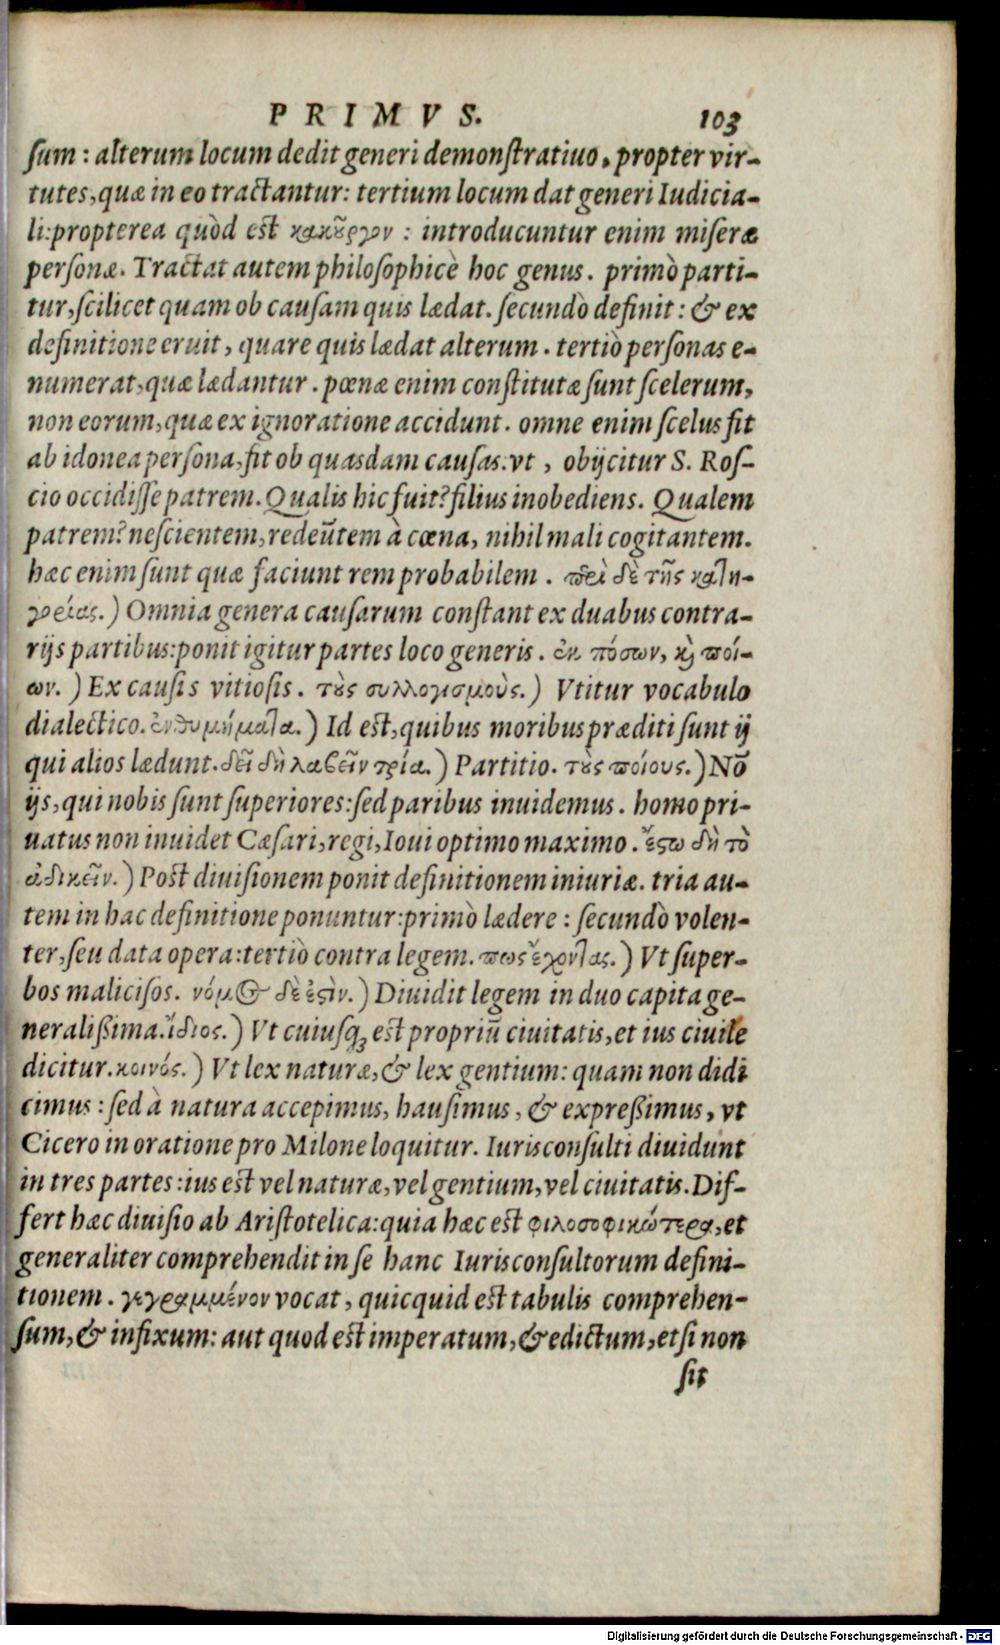 PRIMVS. 103
sum: alterum locum dedit generi demonstratiuo, propter vir-
tutes, quæ in eo tractantur: tertium locum dat generi Iudicia-
li: propterea quòd est κακοῦργον: introducuntur enim miseræ
personæ. Tractat autem philosophicè hoc genus. primò parti-
tur, scilicet quam ob causam quis lædat. secundò definit: & ex
definitione eruit, quare quis lædat alterum. tertiò personas e-
numerat, quæ lædantur. pœnæ enim constitutæ sunt scelerum,
non eorum, quæ ex ignoratione accidunt. omne enim scelus fit
ab idonea persona, fit ob quasdam causas. vt, obijcitur S. Ros-
cio occidisse patrem. Qualis hic fuit? filius inobediens. Qualem
patrem? nescientem, redeũtem à cœna, nihil mali cogitantem.
hæc enim sunt quæ faciunt rem probabilem. περὶ δὲ τῆς κατη-
γρείας.) Omnia genera causarum constant ex duabus contra-
rijs partibus: ponit igitur partes loco generis. ἐκ πόσων, καὶ ποί-
ων.) Ex causis vitiosis. τοὺς συλλογισμοὺς.) Vtitur vocabulo
dialectico. ἐνθυμήματα.) Id est, quibus moribus præditi sunt ij
qui alios lædunt. δεῖ δὴ λαβεῖν τρία.) Partitio. τοὺς ποίους.) Nõ
ijs, qui nobis sunt superiores: sed paribus inuidemus. homo pri-
uatus non inuidet Cæsari, regi, Ioui optimo maximo. ἔστω δὴ τὸ
ἀδικεῖν.) Post diuisionem ponit definitionem iniuriæ. tria au-
tem in hac definitione ponuntur: primò lædere: secundò volen-
ter, seu data opera: tertiò contra legem. πως ἔχοντας.) Vt super-
bos malicisos. νόμος δὲ ἐστὶν.) Diuidit legem in duo capita ge-
neralißima. ἴδιος.) Vt cuiusq; est propriũ ciuitatis, et ius ciuile
dicitur. κοινός.) Vt lex naturæ, & lex gentium: quam non didi
cimus: sed à natura accepimus, hausimus, & expreßimus, vt
Cicero in oratione pro Milone loquitur. Iurisconsulti diuidunt
in tres partes: ius est vel naturæ, vel gentium, vel ciuitatis. Dif-
fert hæc diuisio ab Aristotelica: quia hæc est φιλοσοφικώτερα, et
generaliter comprehendit in se hanc Iurisconsultorum defini-
tionem. γεγραμμένον vocat, quicquid est tabulis comprehen-
sum, & infixum: aut quod est imperatum, & edictum, etsi non
sit
Digitalisierung gefördert durch die Deutsche Forschungsgemeinschaft - DFG